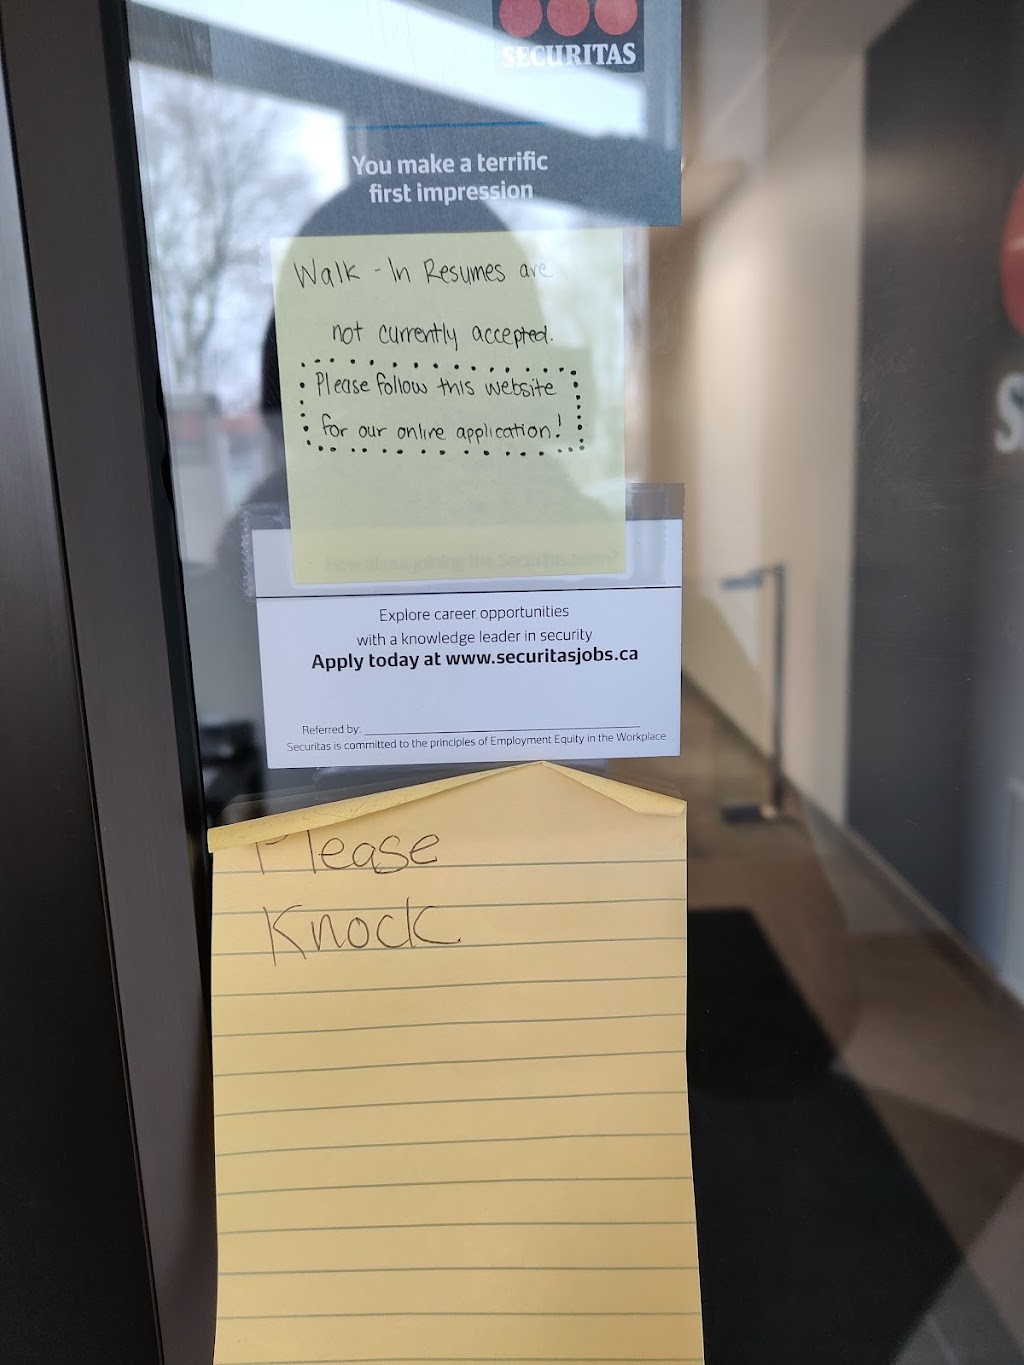 SECURITAS
You make a terrific
first impression
Walk-In Resumes are
not currently accepted.
Please follow this website
for our online application!
How about joining the Securitas team?
Explore career opportunities
with a knowledge leader in security
Apply today at www.securitasjobs.ca
Referred by:
Securitas is committed to the principles of Employment Equity in the Workplace
Please
Knock
S